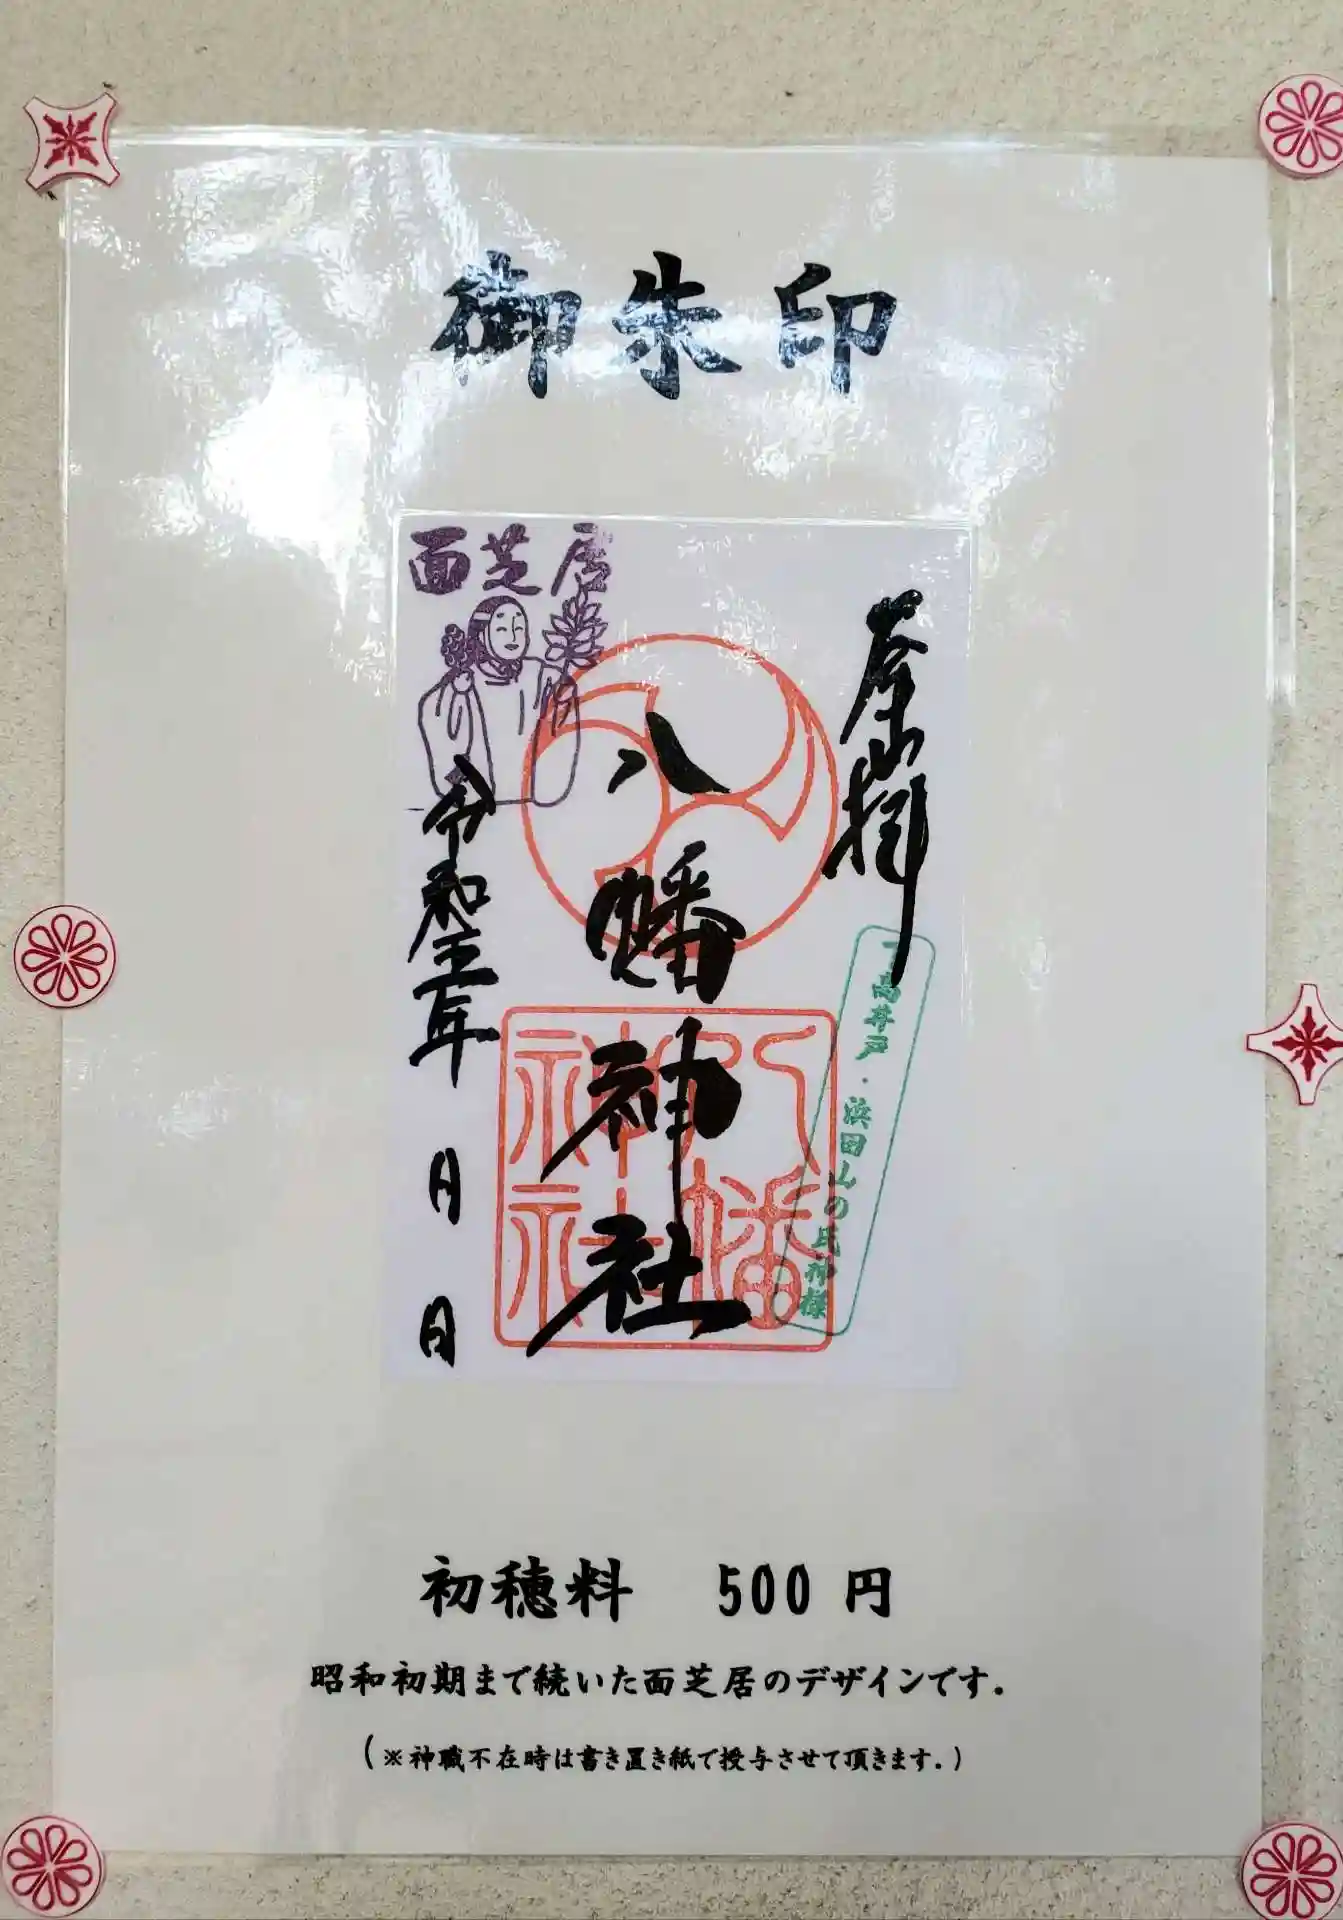 御朱印
面芝居
奉拝
八幡神社
令和五年 月 日
八幡神社
下高井戸・浜田山の氏神様
初穂料 500 円
昭和初期まで続いた面芝居のデザインです.
(※神職不在時は書き置き紙で授与させて頂きます.)